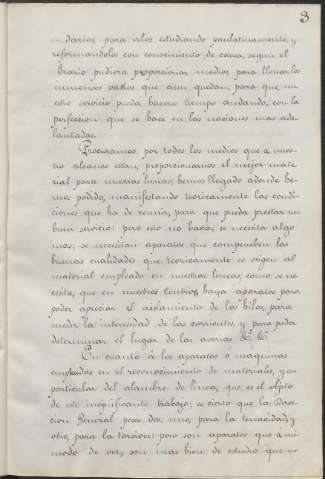 3
derarios para irlos estudiando paulatinamente, y
reformandolos con conocimiento de causa, segun el
Erario pudiera proporcionar medios para llenar los
inmensos vacios que aun quedan, para que, nu
estro servicio pueda hacerse tiempo andando, con la
perfeccion que se hace en las naciones mas ade
lantadas.
Procuramos por todos los medios que á nues
tro alcance estan, proporcionarnos el mejor mate
rial para nuestras lineas; hemos llegado adonde he
mos podido, manifestando teoricamente las condi
ciones que ha de reunir, para que pueda prestar un
buen servicio: pero esto no basta, se necesita algo
mas; se necesitan aparatos que comprueben las
buenas cualidades que teoricamente se exigen al
material empleado en nuestras lineas; como se ne
cesita, que en nuestros centros, haya aparatos para
poder apreciar el aislamiento de los hilos, para
medir la intensidad de las corrientes, y para poder
determinar el lugar de las averias &ª &ª
En cuanto á los aparatos ó maquinas
empleadas en el reconocimiento de materiales, y en
particular del alambre de linea, que es el objeto
de este insignificante trabajo; es cierto que la Direc
cion General posee dos; uno, para la tenacidad, y
otro, para la torsion: pero son aparatos que á mi
modo de ver, son mas bien de estudio que no